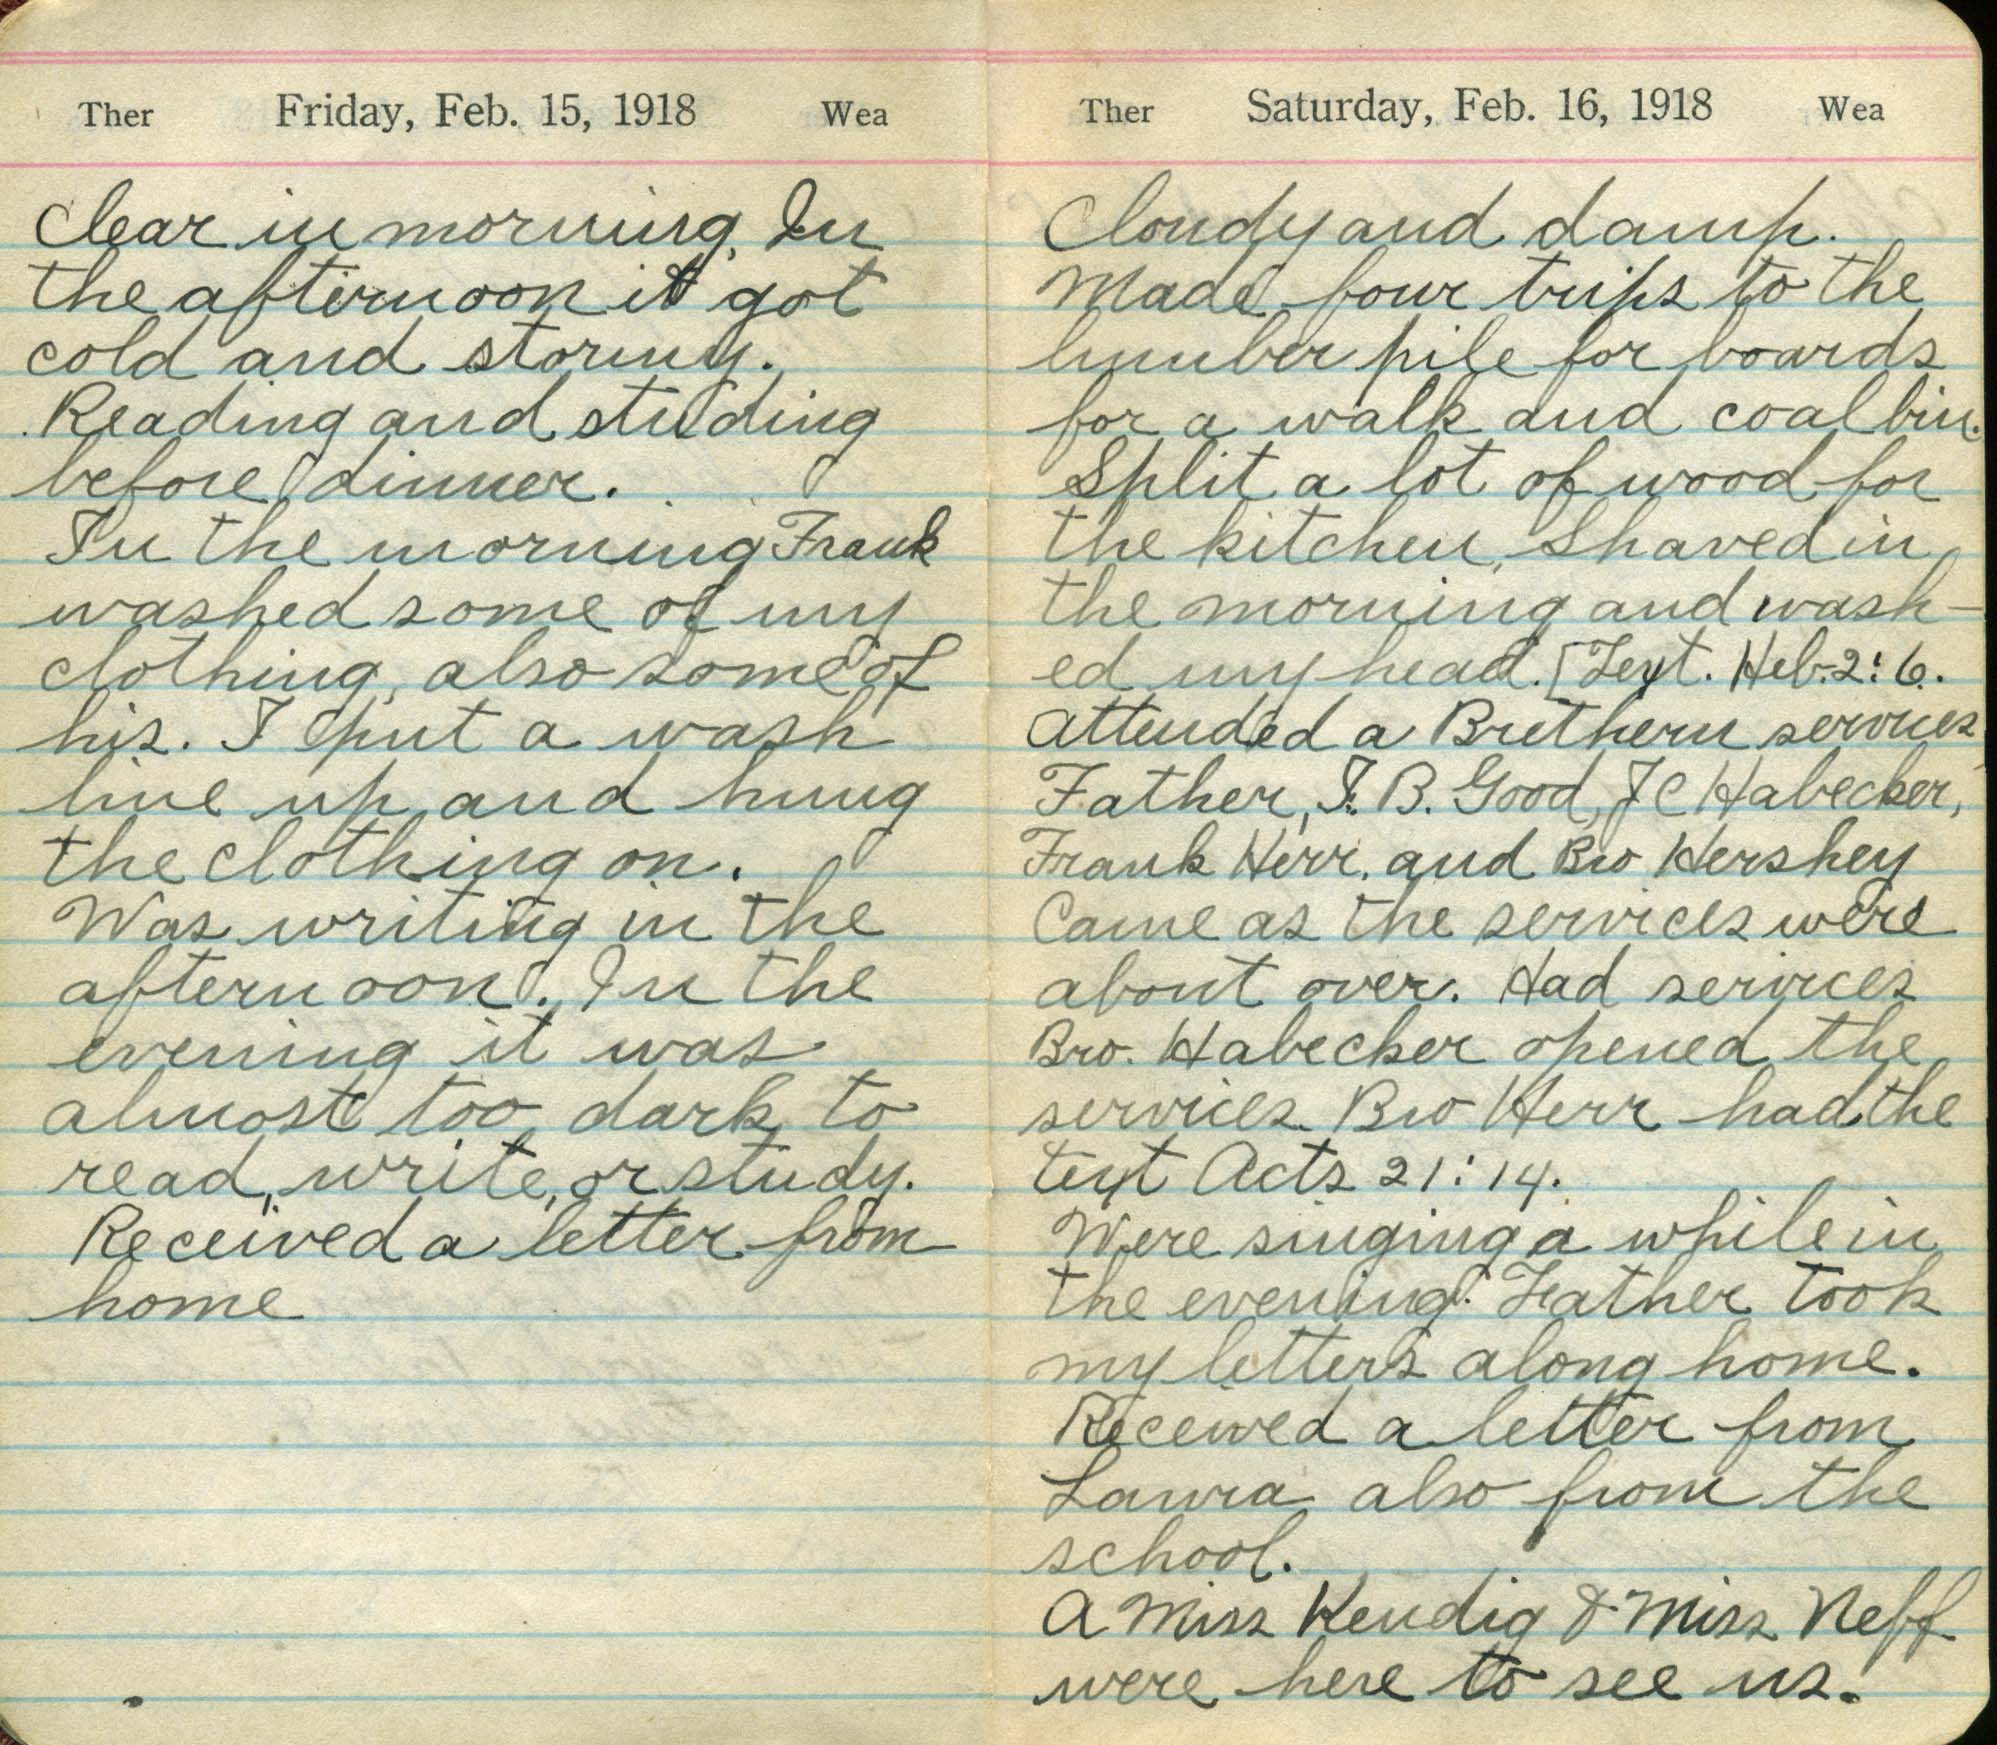 Ther Friday, Feb. 15, 1918 Wea
Clear in morning. In
the afternoon it got
cold and stormy.
Reading and studing
before dinner.
In the morning Frank
washed some of my
clothing, also some of
his. I put a wash
line up and hung
the clothing on.
Was writing in the
afternoon. In the
evening it was
almost too dark to
read, write, or study.
Received a letter from
home
Ther Saturday, Feb. 16, 1918 Wea
Cloudy and damp.
Made four trips to the
lumber pile for boards
for a walk and coal bin.
Split a lot of wood for
the kitchen. Shaved in
the morning and wash-
ed my head. [Text. Heb. 2:6.
Attended a Brethern services
Father, I. B. Good, J C Habecker,
Frank Herr. and Bro Hershey
Came as the services were
about over. Had services
Bro. Habecker opened the
services. Bro Herr had the
text Acts 21:14.
Were singing a while in
the evening. Father took
my letters along home.
Received a letter from
Laura also from the
school.
A Miss Kendig & Miss Neff
were here to see us.